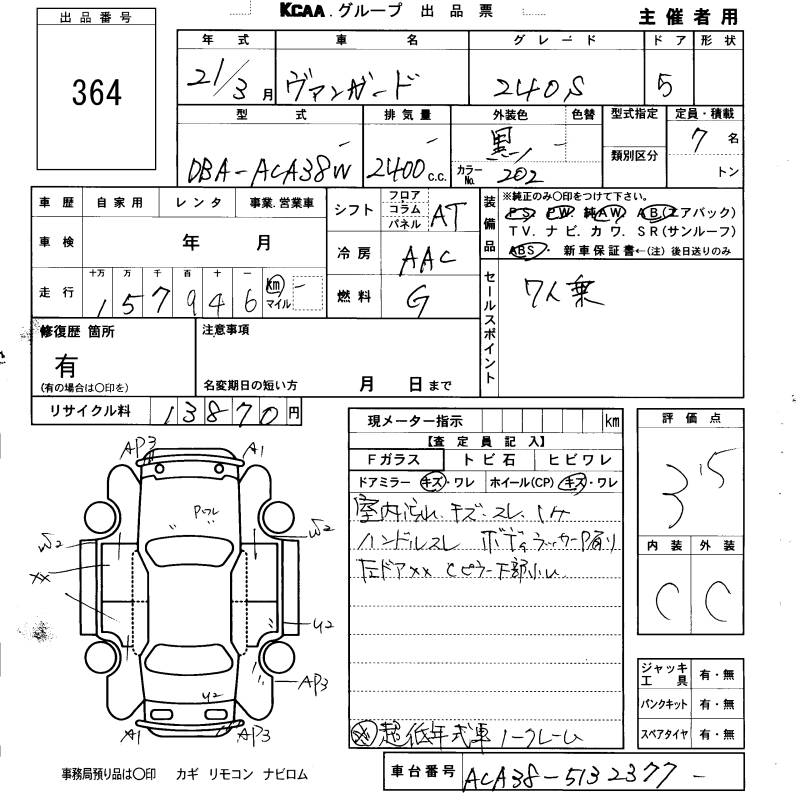 出品番号
364
KCAA.グループ 出品票
主催者用
年式 車名 グレード ドア 形状
21/3月 ヴァンガード 240S 5
型式 排気量 外装色 色替 型式指定 定員・積載
DBA-ACA38W - 2400 - c.c. 黒 - 7名
カラーNo. 202 類別区分 トン
車歴 自家用 レンタ 事業.営業車
車検 年 月
走行 十万 万 千 百 十 一
157946 km マイル -
シフト フロア コラム パネル AT
冷房 AAC
燃料 G
装備品
※純正のみ〇印をつけて下さい。
PS. PW. 純AW. AB.(エアバック)
TV. ナビ. カワ. SR(サンルーフ)
ABS・ 新車保証書←(注)後日送りのみ
セールスポイント
7人乗
修復歴 箇所
有
(有の場合は〇印を)
注意事項
名変期日の短い方 月 日まで
リサイクル料 13870円
現メーター指示 km
【査定員記入】
Fガラス トビ石 ヒビワレ
ドアミラー キズ・ワレ ホイール(CP) キズ・ワレ
室内汚れ. キズ. スレ.
ハンドルスレ ボディラッカーP有り
左ドアXX Cピラー下部
超低年式車ノークレーム
評価点
3.5
内装 外装
C C
ジャッキ工具 有・無
パンクキット 有・無
スペアタイヤ 有・無
AP3 A1
W2 W2
XX
U2
AP3
U2
A1 AP3
事務局預り品は〇印 カギ リモコン ナビロム
車台番号 ACA38-5132377 -